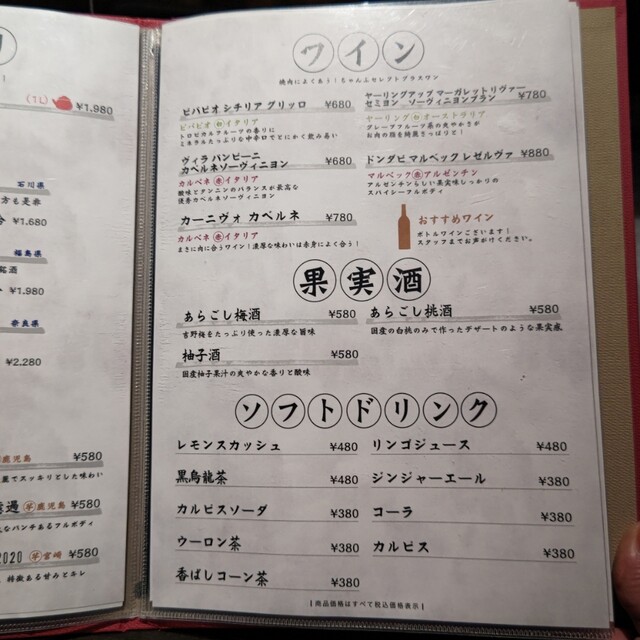 リ
(1L) ¥1.980
石川県
方も是非
¥1.680
福島県
¥1.980
奈良県
¥2.280
鹿児島 ¥580
でスッキリとした味わい
芋 鹿児島 ¥580
なパンチあるフルボディ
2020 芋 宮崎 ¥580
特徴ある甘みとキレ
ワイン
焼肉によくあう！ちゃんぷセレクトグラスワン
ビバビオ シチリア グリッロ ¥680
ビバビオ 白 イタリア
トロピカルフルーツの香りに
ミネラルたっぷりな中辛口でとにかく飲み易い
ヴィラ バンビーニ
カベルネソーヴィニヨン ¥680
カルベネ 赤 イタリア
酸味とタンニンのバランスが最高な
優秀カベルネソーヴィニヨン
カーニヴォ カベルネ ¥780
カルベネ 赤 イタリア
まさに肉に合うワイン！濃厚な味わいは赤身によく合う！
ヤーリングアップ マーガレットリヴァー
セミヨン ソーヴィニヨンブラン ¥780
ヤーリング 白 オーストラリア
グレープフルーツ系の爽やかさが
お肉の脂を綺麗さっぱりと！
ドンダビ マルベック レゼルヴァ ¥880
マルベック 赤 アルゼンチン
アルゼンチンらしい果実味しっかりの
スパイシーフルボディ
おすすめワイン
ボトルワインございます！
スタッフまでお声がけください。
果実酒
あらごし梅酒 ¥580
吉野梅をたっぷり使った濃厚な旨味
あらごし桃酒 ¥580
国産の白桃のみで作ったデザートのような果実感
柚子酒 ¥580
国産柚子果汁の爽やかな香りと酸味
ソフトドリンク
レモンスカッシュ ¥480
リンゴジュース ¥480
黒烏龍茶 ¥480
ジンジャーエール ¥380
カルピスソーダ ¥380
コーラ ¥380
ウーロン茶 ¥380
カルピス ¥380
香ばしコーン茶 ¥380
|商品価格はすべて税込価格表示|